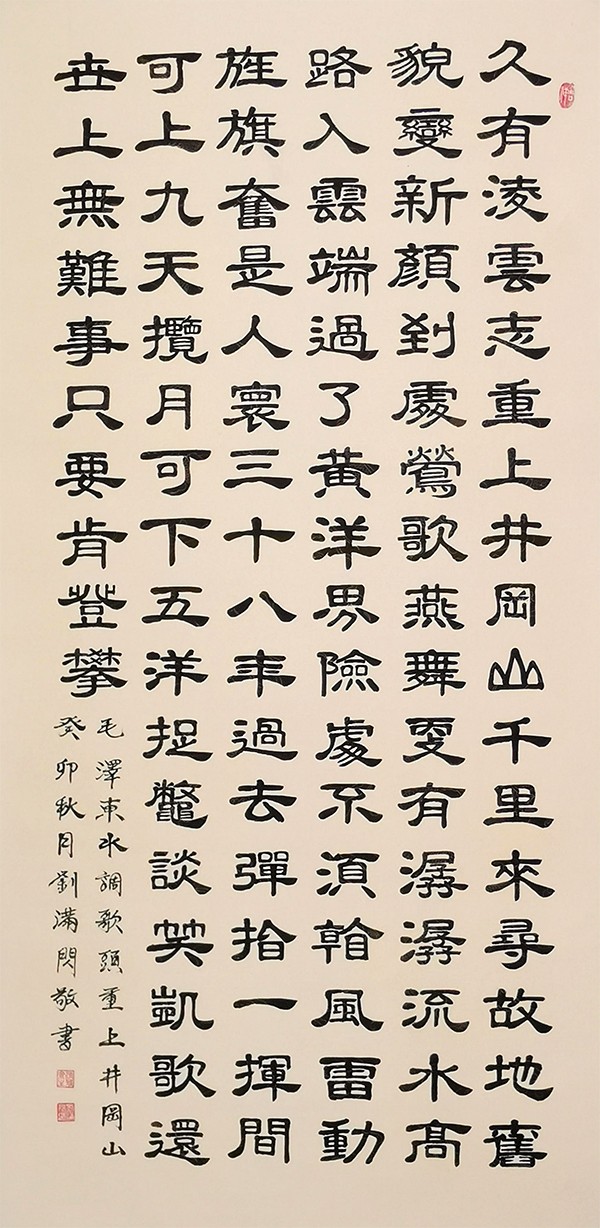 久有淩雲志重上井岡山千里來尋故地舊
貌變新顏到處鶯歌燕舞更有潺潺流水高
路入雲端過了黃洋界險處不須看風雷動
旌旗奮是人寰三十八年過去彈指一揮間
可上九天攬月可下五洋捉鼈談笑凱歌還
世上無難事只要肯登攀
毛澤東水調歌頭重上井岡山
癸卯秋月劉滿閃敬書